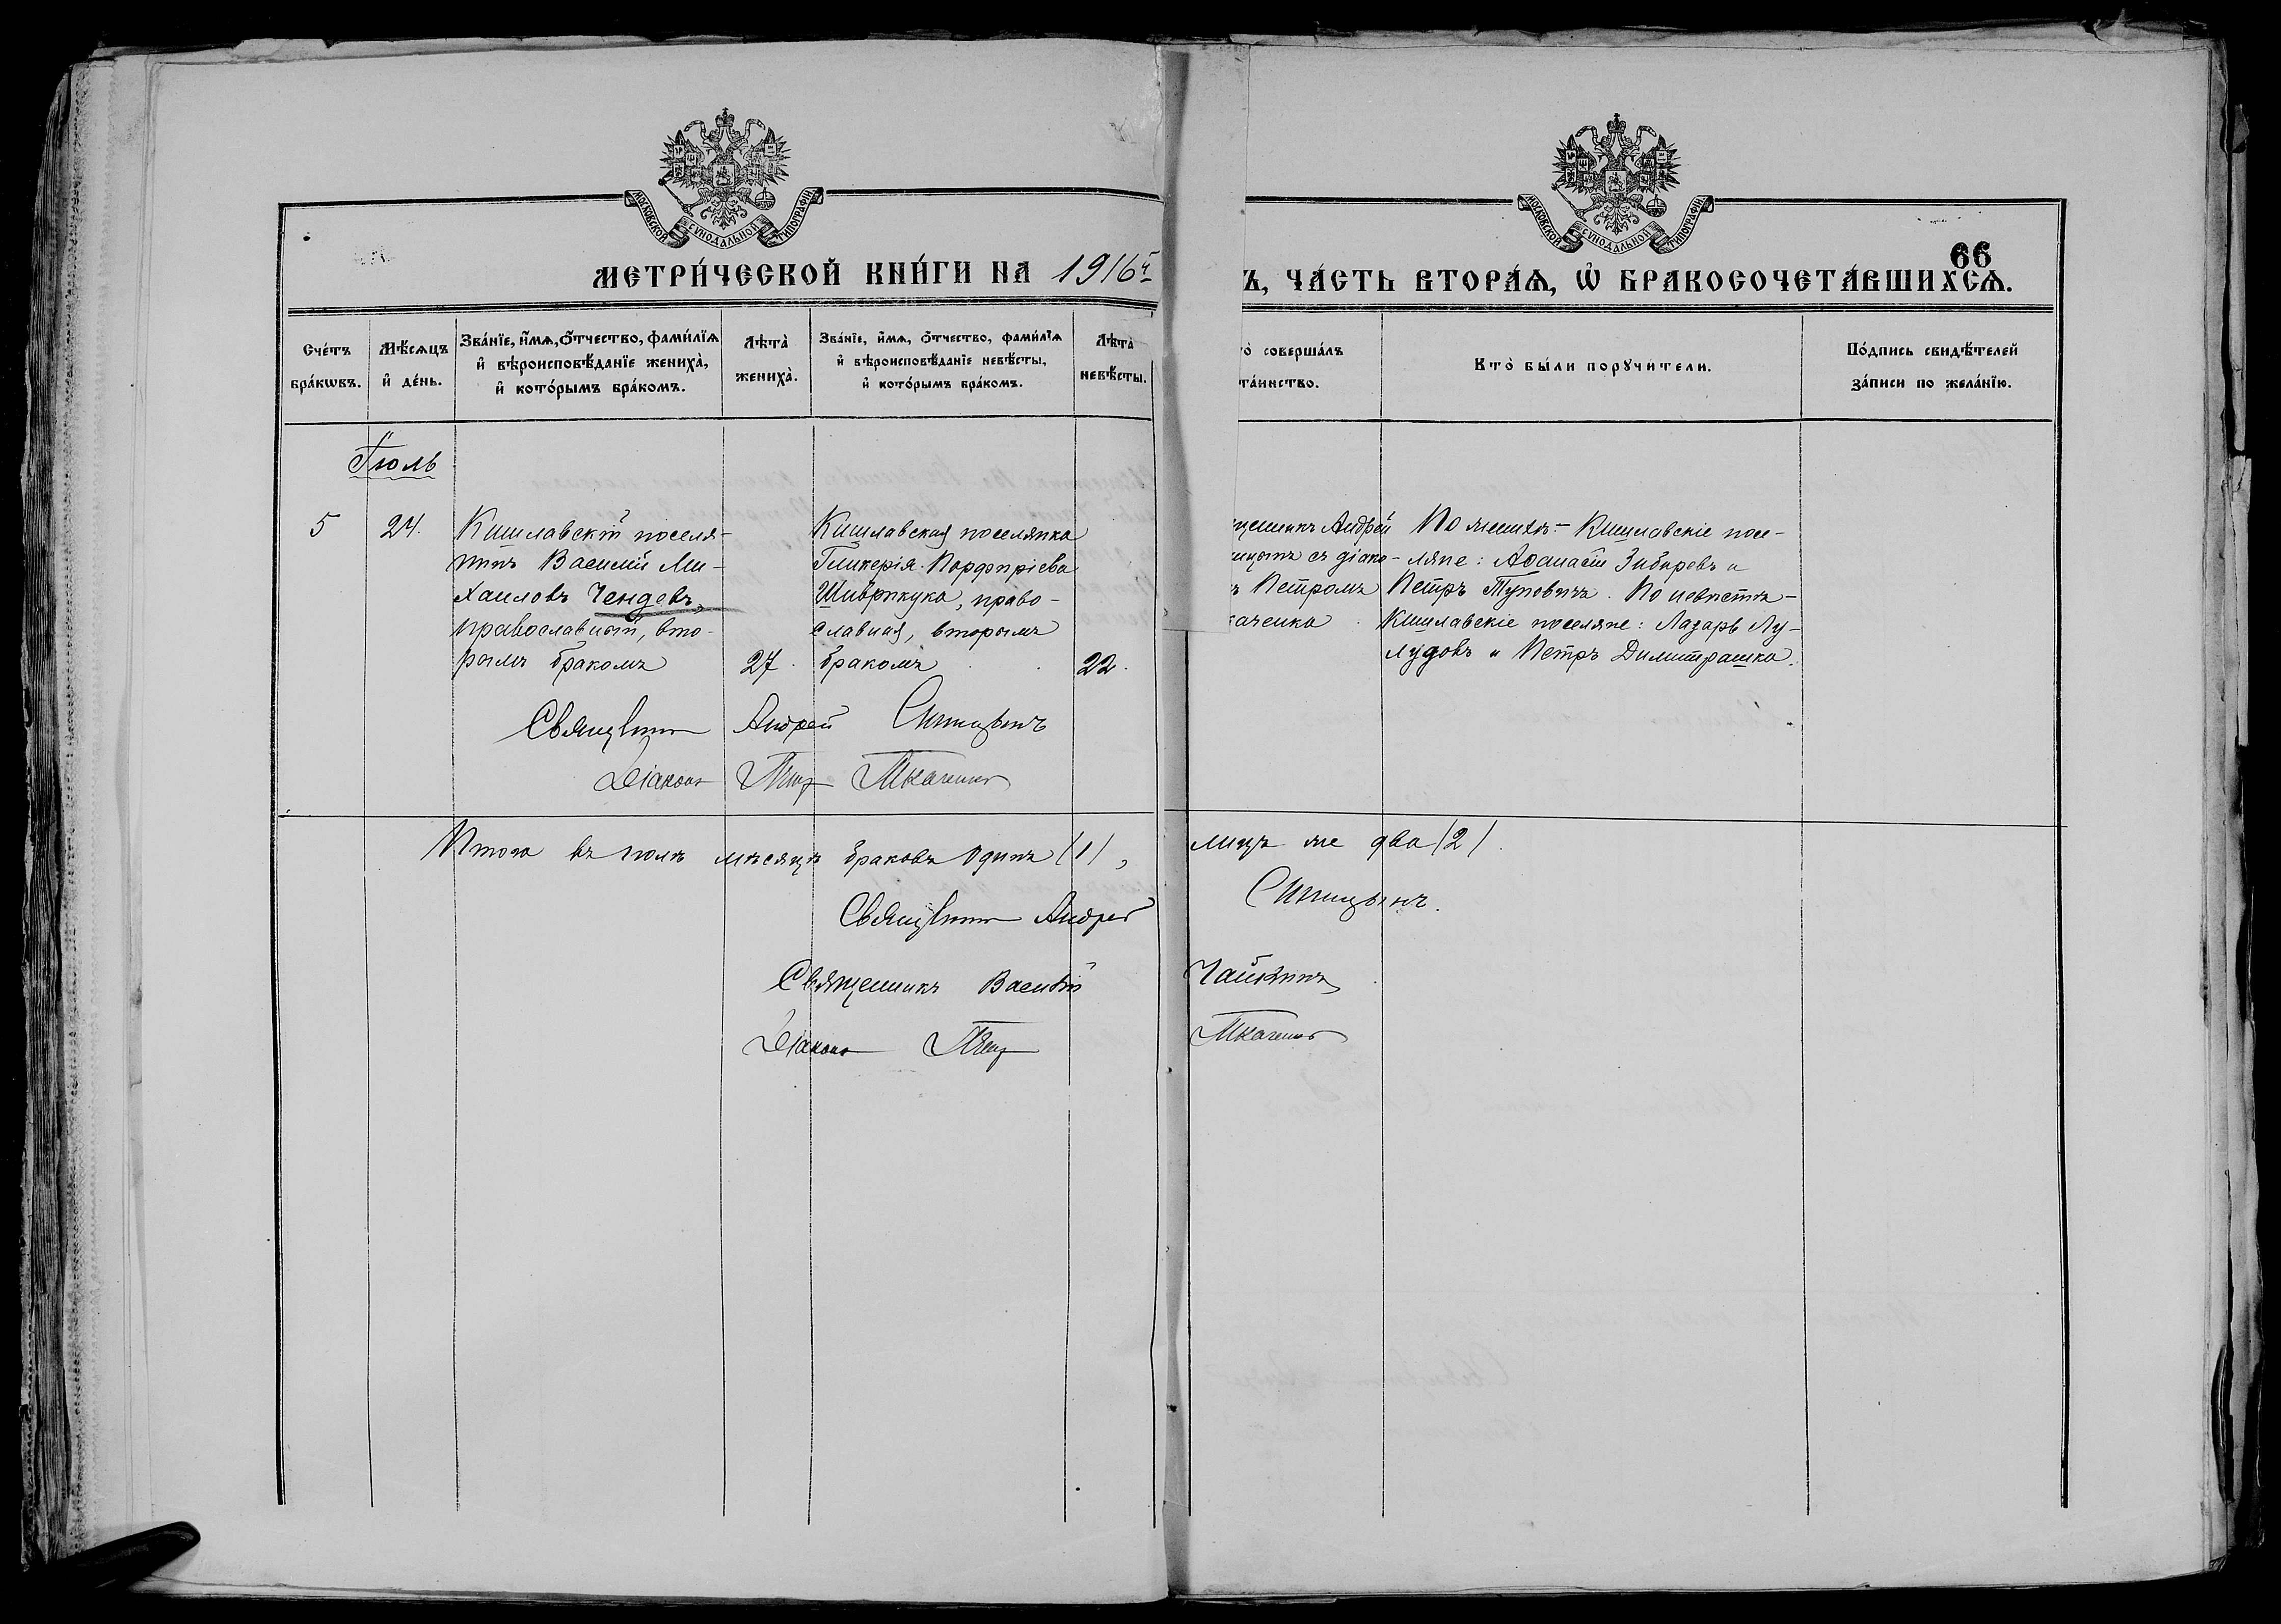 МОСКОВСКОЙ СѴНОДАЛЬНОЙ ТИПОГРАФІИ
МОСКОВСКОЙ СѴНОДАЛЬНОЙ ТИПОГРАФІИ
66
МЕТРИ́ЧЕСКОЙ КНИ́ГИ НА 1916й
Ъ, ЧА́СТЬ ВТОРА́Ѧ, Ѡ҆ БРАКОСОЧЕТА́ВШИХСѦ.
Сче́тъ бра́кѡвъ.
Мѣ́сѧцъ и҆ де́нь.
Зва́нїе, и҆́мѧ, ѻ҆́тчество, фами́лїѧ и҆ вѣроисповѣ́данїе жениха̀, и҆ кото́рымъ бра́комъ.
Лѣта̀ жениха̀.
Зва́нїе, и҆́мѧ, ѻ҆́тчество, фами́лїѧ и҆ вѣроисповѣ́данїе невѣ́сты, и҆ кото́рымъ бра́комъ.
Лѣта̀ невѣ́сты.
то̀ соверша́лъ
та́инство.
Кто̀ бы́ли порꙋчи́тели.
По́дпись свидѣ́телей
за́писи по жела́нїю.
Іюль
5
24.
Кишлавскій поселя-
нинъ Василій Ми-
хаиловъ Чендевъ,
православный, вто-
рымъ бракомъ
27.
Кишлавская поселянка
Гликерія Порфиріева
Шиврикука, право-
славная, вторымъ
бракомъ
22.
щенникъ Андрей
ицынъ съ діако-
ъ Петромъ
каченко
По женихѣ:- Кишлавскіе посе-
ляне: Аѳанасій Зибаревъ и
Петръ Туповичъ. По невѣстѣ-
Кишлавскіе поселяне: Лазарь Лу-
лудовъ и Петръ Димитрашко.
Священникъ Андрей Синицынъ
Діаконъ Петръ Ткаченко
Итого въ іюлѣ мѣсяцѣ браковъ одинъ /1/, лицъ же два /2/.
Священникъ Андрей Синицынъ.
Священникъ Василій Чайкинъ
Діаконъ Петръ Ткаченко